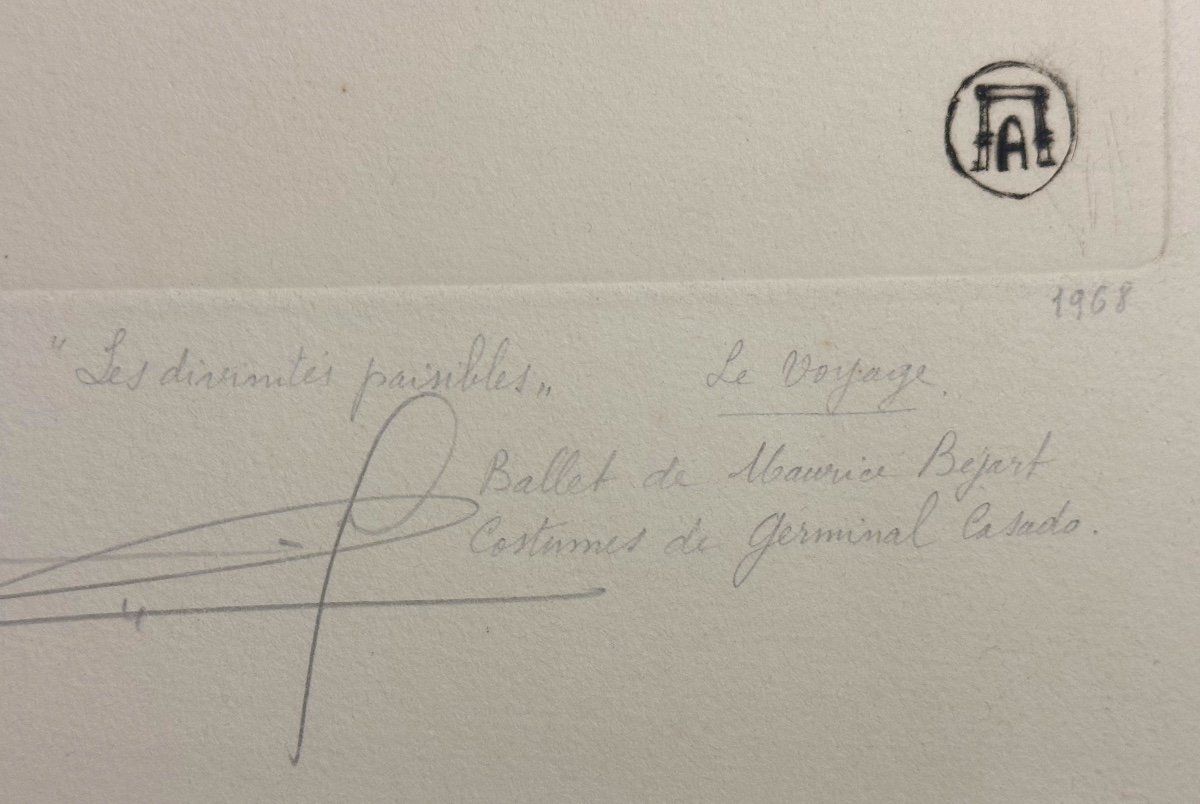 A
1968
"Les divinités paisibles„ Le Voyage.
Ballet de Maurice Béjart
Costumes de Germinal Casado.